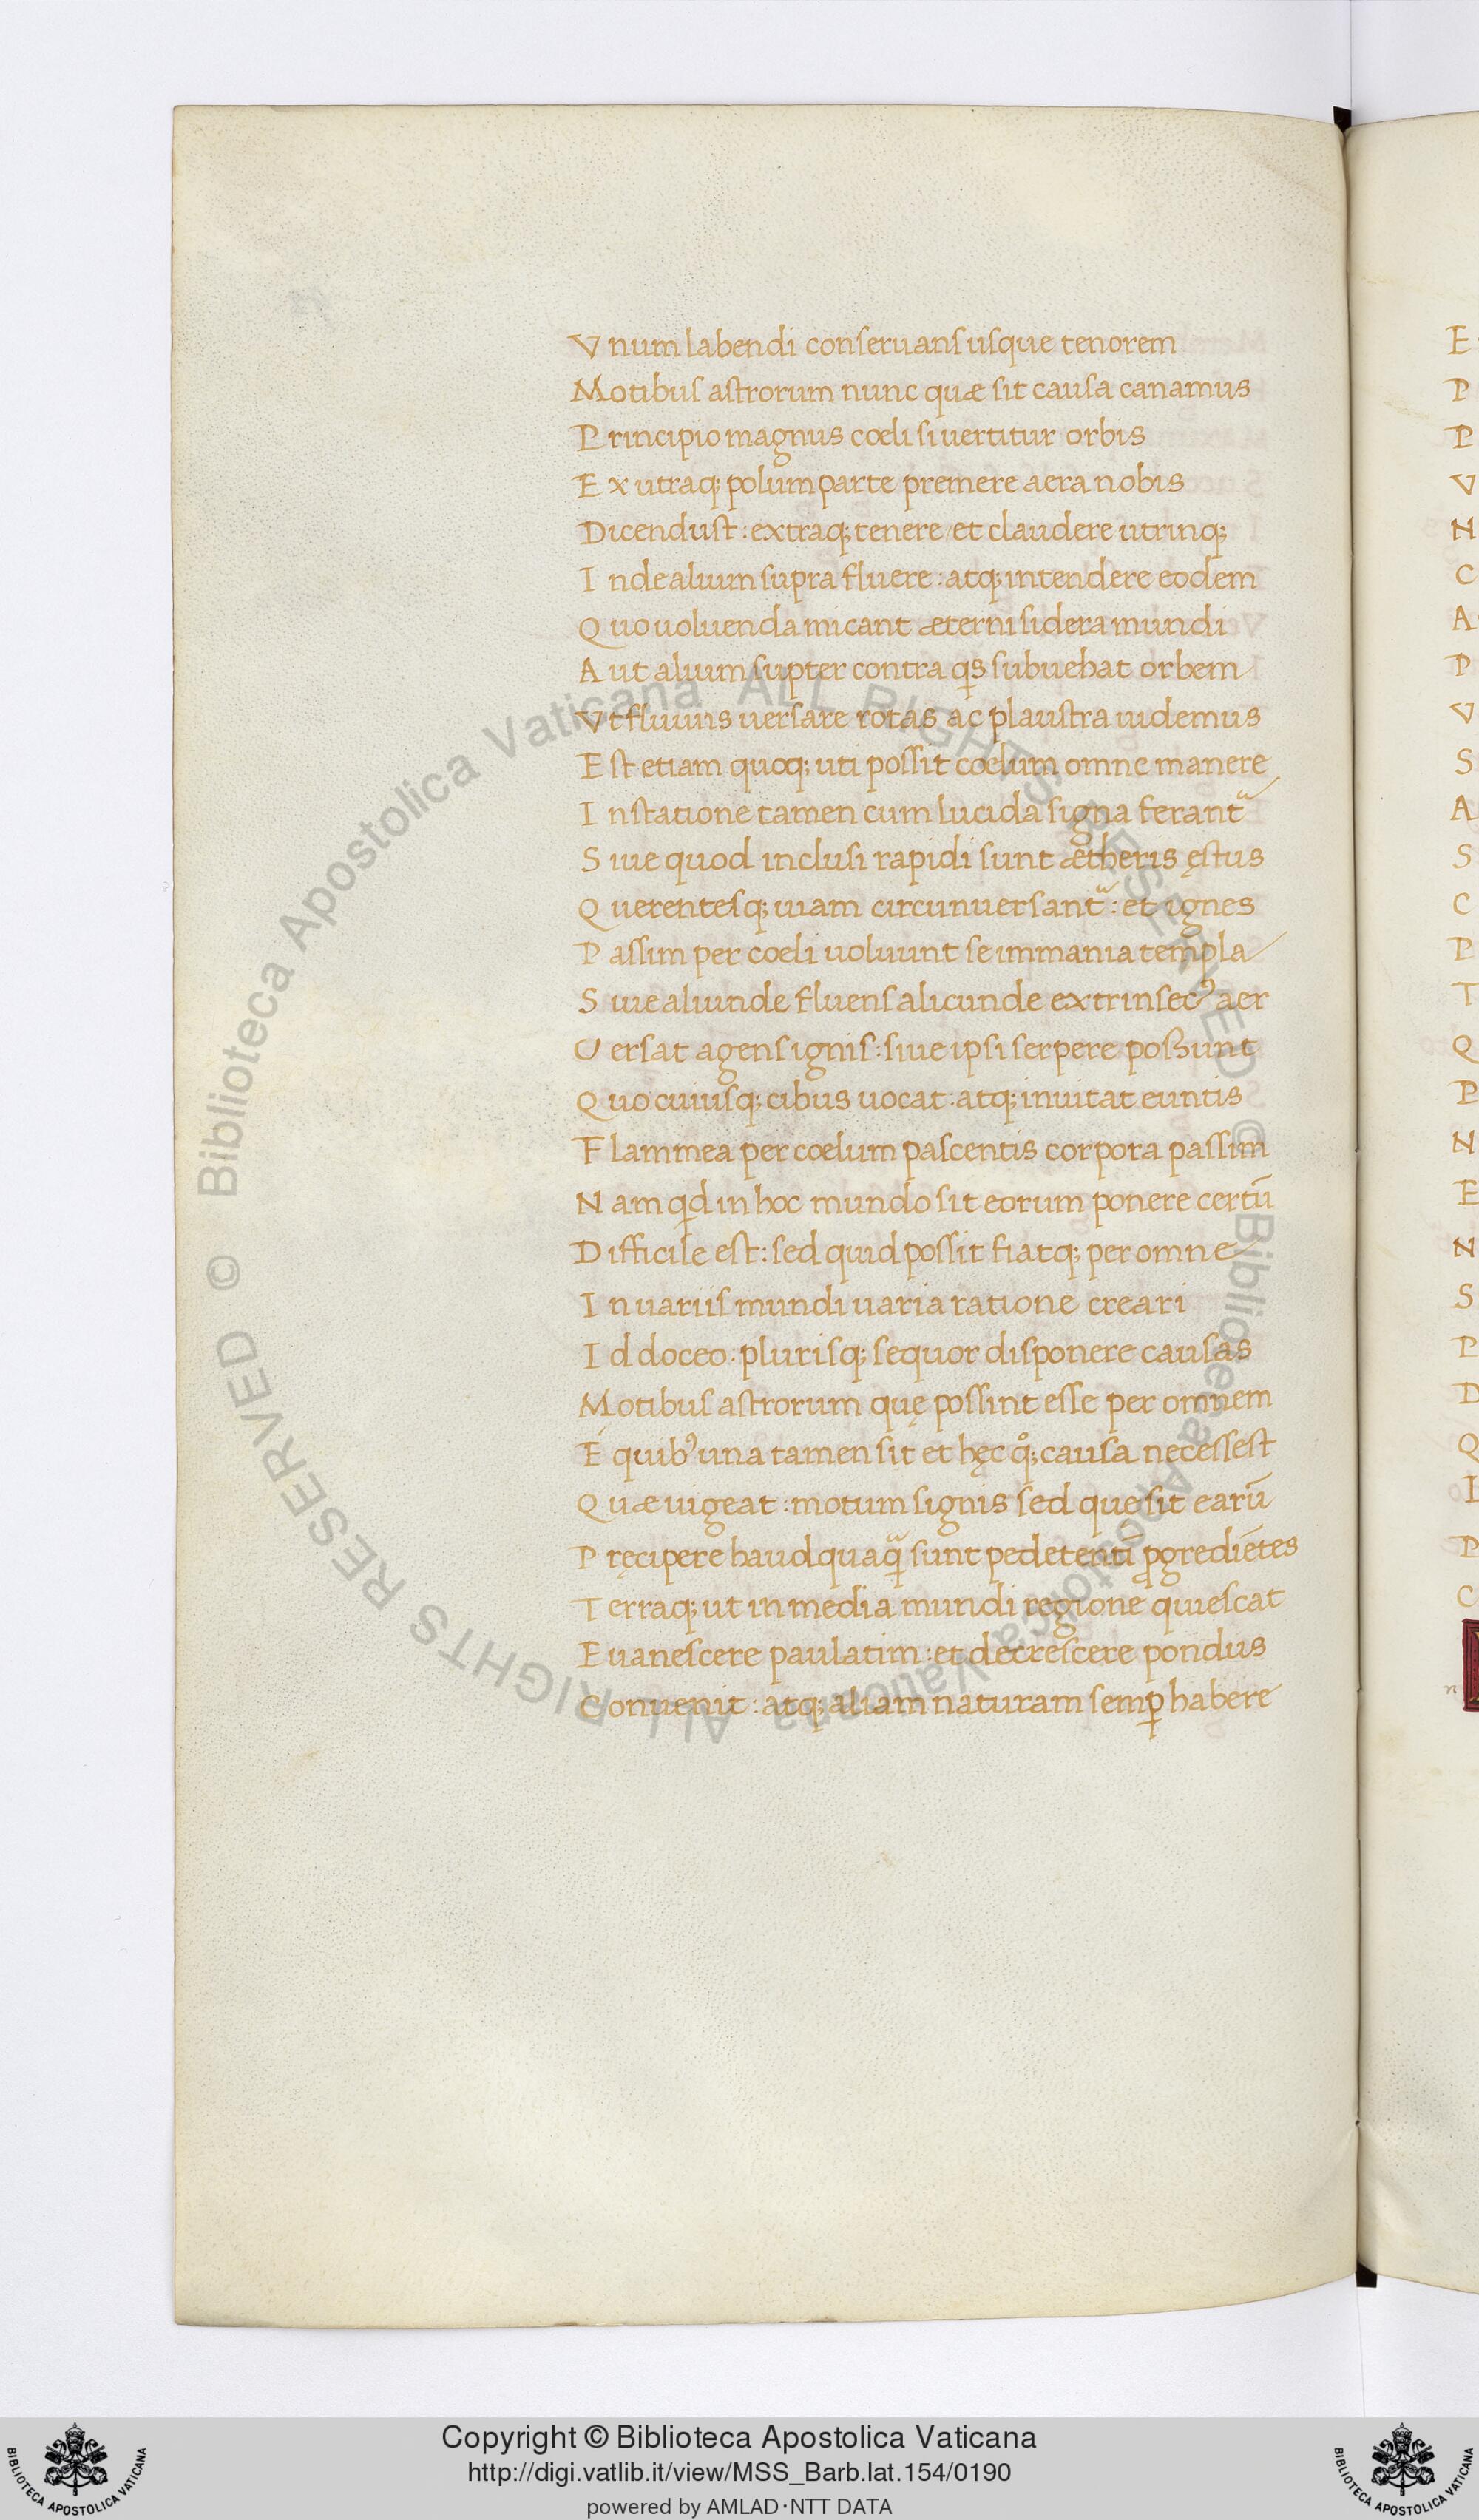 Vnum labendi conseruans usque tenorem
Motibus astrorum nunc quæ sit causa canamus
Principio magnus cœli si uertitur orbis
Ex utraq; polum parte premere aera nobis
Dicendust: extraq; tenere / et claudere utrinq;
Inde alium supra fluere: atq; intendere eodem
Quo uoluenda micant æterni sidera mundi
Aut alium supter contra qs subuehat orbem
Vt fluuiis uersare rotas ac plaustra uidemus
Est etiam quoq; uti possit coelum omne manere
In statione tamen cum lucida signa ferant᷑
Siue quod inclusi rapidi sunt ætheris ęstus
Querentesq; uiam circunuersant᷑: et ignes
Passim per coeli uoluunt se immania templa
Siue aliunde fluens alicunde extrinsecꝰ aer
Versat agens ignis: siue ipsi serpere possunt
Quo cuiusq; cibus uocat: atq; inuitat euntis
Flammea per coelum pascentis corpora passim
Nam qd in hoc mundo sit eorum ponere certū
Difficile est: sed quid possit fiatq; per omne
In uariis mundi uaria ratione creari
Id doceo: plurisq; sequor disponere causas
Motibus astrorum quę possint esse per omnem
É quibꝰ una tamen sit et hęc qͦ; causa necessest
Quæ uigeat: motum signis sed que sit earū
Pręcipere haud quaqᷓ sunt pedetentī ꝓgrediētes
Terraq; ut in media mundi regione quiescat
Euanescere paulatim: et decrescere pondus
Conuenit: atq; aliam naturam semꝑ habere
E
P
P
V
N
C
A
P
V
S
A
S
C
P
T
Q
P
N
E
N
S
P
D
Q
I
P
C
n
© Biblioteca Apostolica Vaticana ALL RIGHTS RESERVED © Biblioteca Apostolica Vaticana ALL RIGHTS RESERVED
Copyright © Biblioteca Apostolica Vaticana
http://digi.vatlib.it/view/MSS_Barb.lat.154/0190
powered by AMLAD·NTT DATA
BIBLIOTECA APOSTOLICA VATICANA
BIBLIOTECA APOSTOLICA VATICANA